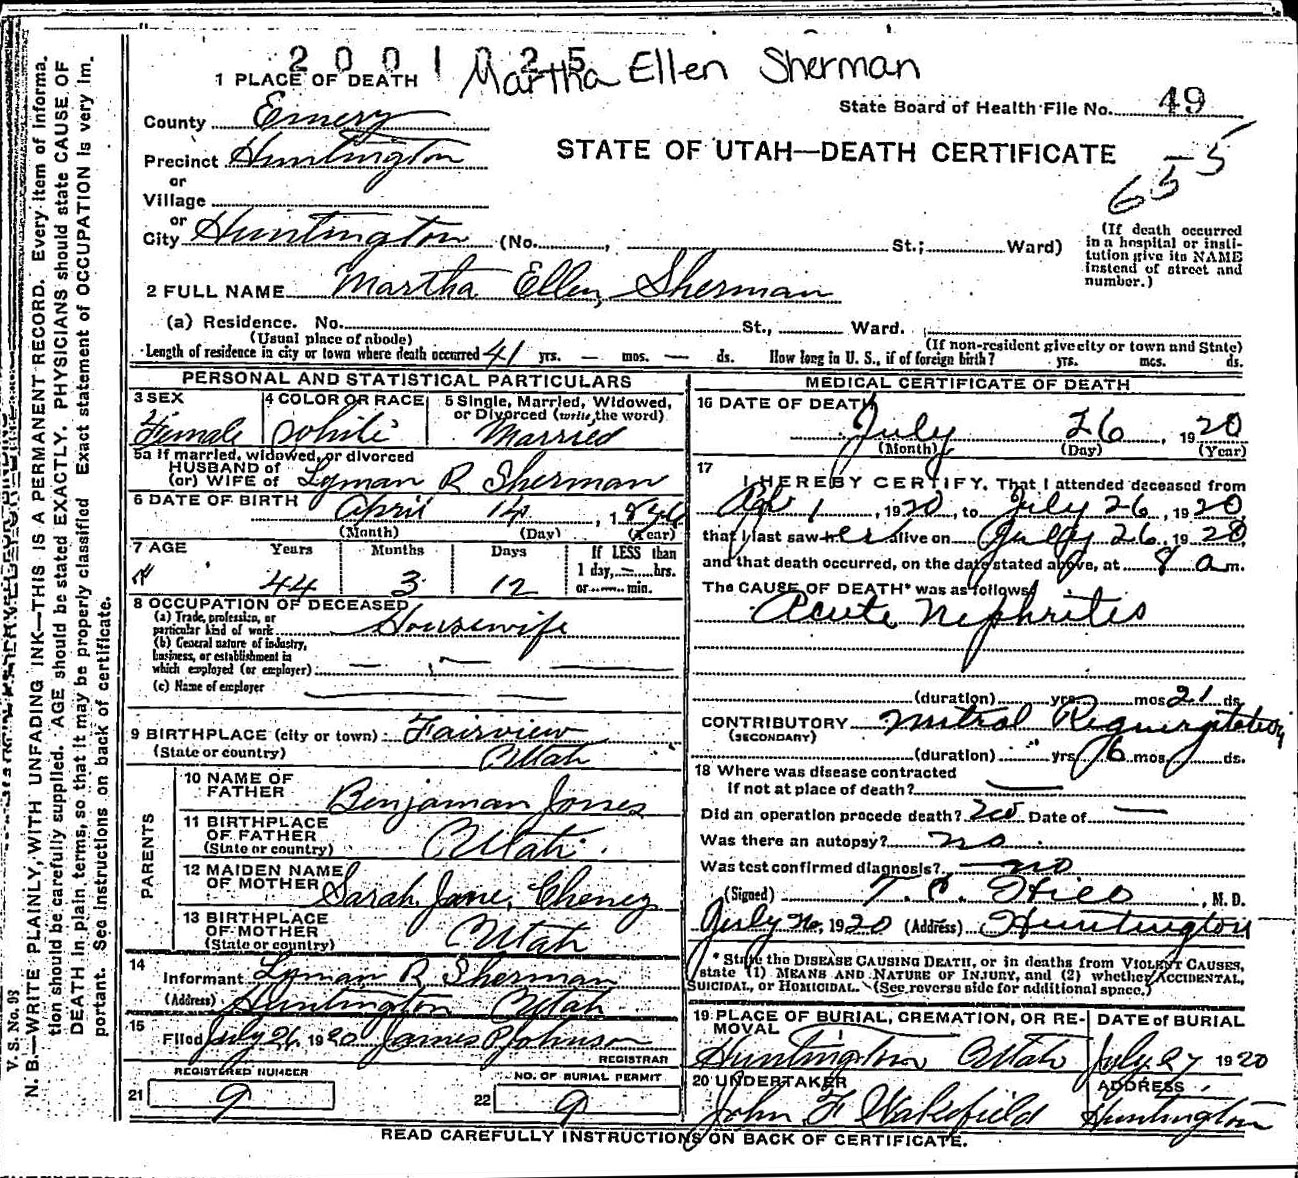 2001025
Martha Ellen Sherman
1 PLACE OF DEATH
State Board of Health File No. 49
County Emery
STATE OF UTAH—DEATH CERTIFICATE
655
Precinct Huntington
or
Village
or
City Huntington (No. , St.; Ward)
(If death occurred in a hospital or insti-
tution give its NAME
instead of street and
number.)
2 FULL NAME Martha Ellen, Sherman
(a) Residence. No. St., Ward.
(Usual place of abode) (If non-resident give city or town and State)
Length of residence in city or town where death occurred 41 yrs. — mos. — ds. How long in U. S., if of foreign birth? yrs. mos. ds.
PERSONAL AND STATISTICAL PARTICULARS
3 SEX Female
4 COLOR OR RACE White
5 Single, Married, Widowed,
or Divorced (write the word)
Married
5a If married, widowed, or divorced
HUSBAND of
(or) WIFE of Lyman R Sherman
6 DATE OF BIRTH April 14, 1
(Month) (Day) (Year)
7 AGE Years Months Days If LESS than
1 day, — hrs.
44 3 12 or min.
8 OCCUPATION OF DECEASED
(a) Trade, profession, or
particular kind of work Housewife
(b) General nature of industry,
business, or establishment in
which employed (or employer)
(c) Name of employer
9 BIRTHPLACE (city or town) Fairview
(State or country) Utah
PARENTS
10 NAME OF
FATHER Benjaman Jones
11 BIRTHPLACE
OF FATHER
(State or country) Utah
12 MAIDEN NAME
OF MOTHER Sarah Jane, Cheney
13 BIRTHPLACE
OF MOTHER
(State or country) Utah
14
Informant Lyman R Sherman
(Address) Huntington Utah
15
Filed July 26, 1920 James P Johnson
REGISTRAR
REGISTERED NUMBER NO. OF BURIAL PERMIT
21 9 22 9
MEDICAL CERTIFICATE OF DEATH
16 DATE OF DEATH
July 26, 1920
(Month) (Day) (Year)
17
I HEREBY CERTIFY, That I attended deceased from
1, 1920, to July 26, 1920,
that I last saw her alive on July 26, 1920,
and that death occurred, on the date stated above, at 8 a m.
The CAUSE OF DEATH* was as follows:
Acute Nephritis
(duration) yrs. mos. 21 ds.
CONTRIBUTORY Mitral Regurgitation
(SECONDARY)
(duration) yrs. 6 mos. ds.
18 Where was disease contracted
if not at place of death? —
Did an operation procede death? no Date of —
Was there an autopsy? no
Was test confirmed diagnosis? no
(Signed) T. C. Hill, M. D.
July 26, 1920 (Address) Huntington
* State the DISEASE CAUSING DEATH, or in deaths from VIOLENT CAUSES,
state (1) MEANS AND NATURE OF INJURY, and (2) whether ACCIDENTAL,
SUICIDAL, or HOMICIDAL. (See reverse side for additional space.)
19 PLACE OF BURIAL, CREMATION, OR RE-
MOVAL
Huntington Utah
DATE of BURIAL
July 27 1920
20 UNDERTAKER
John F Wakefield
ADDRESS
Huntington
READ CAREFULLY INSTRUCTIONS ON BACK OF CERTIFICATE.
V. S. No. 98
N. B.—WRITE PLAINLY, WITH UNFADING INK—THIS IS A PERMANENT RECORD. Every item of informa-
tion should be carefully supplied. AGE should be stated EXACTLY. PHYSICIANS should state CAUSE OF
DEATH in plain terms, so that it may be properly classified. Exact statement of OCCUPATION is very im-
portant. See instructions on back of certificate.